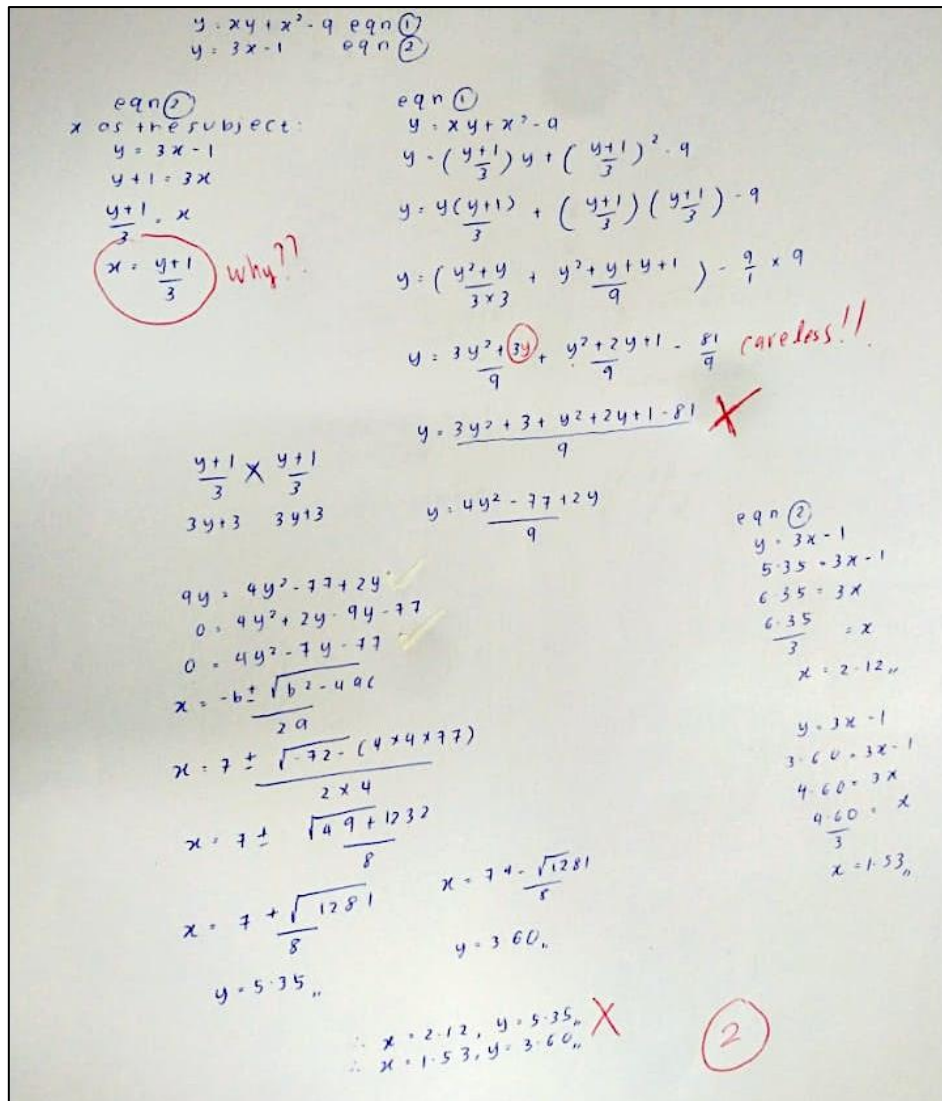 y = xy + x² - 9 eqn ①
y = 3x - 1 eqn ②
eqn ②
x as the subject:
y = 3x - 1
y + 1 = 3x
y+1/3 = x
x = y+1/3 why??
eqn ①
y = xy + x² - 9
y = (y+1/3) y + (y+1/3)² - 9
y = y(y+1)/3 + (y+1/3)(y+1/3) - 9
y = (y²+y/3×3 + y²+y+y+1/9) - 9/1 × 9
y = 3y²+3y/9 + y²+2y+1/9 - 81/9 careless!!
y = 3y² + 3 + y² + 2y + 1 - 81/9 X
y = 4y² - 77 + 2y/9
y+1/3 × y+1/3
3y+3 3y+3
9y = 4y² - 77 + 2y
0 = 4y² + 2y - 9y - 77
0 = 4y² - 7y - 77
x = -b ± √b² - 4ac/2a
x = 7 ± √-72 - (4×4×77)/2×4
x = 7 ± √49 + 1232/8
x = 7 + √1281/8
y = 5.35,,
x = 7 - √1281/8
y = 3.60,,
eqn ②
y = 3x - 1
5.35 = 3x - 1
6.35 = 3x
6.35/3 = x
x = 2.12,,
y = 3x - 1
3.60 = 3x - 1
4.60 = 3x
4.60/3 = x
x = 1.53,,
∴ x = 2.12, y = 5.35,, X
∴ x = 1.53, y = 3.60,,
2